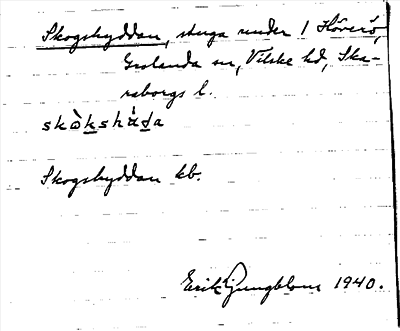 Skogshyddan, stuga under 1 Höverö,
Grolanda sn, Vilske hd, Ska-
raborgs l.
skòkshàda
Skogshyddan kb.
Erik Ljungblom 1940.